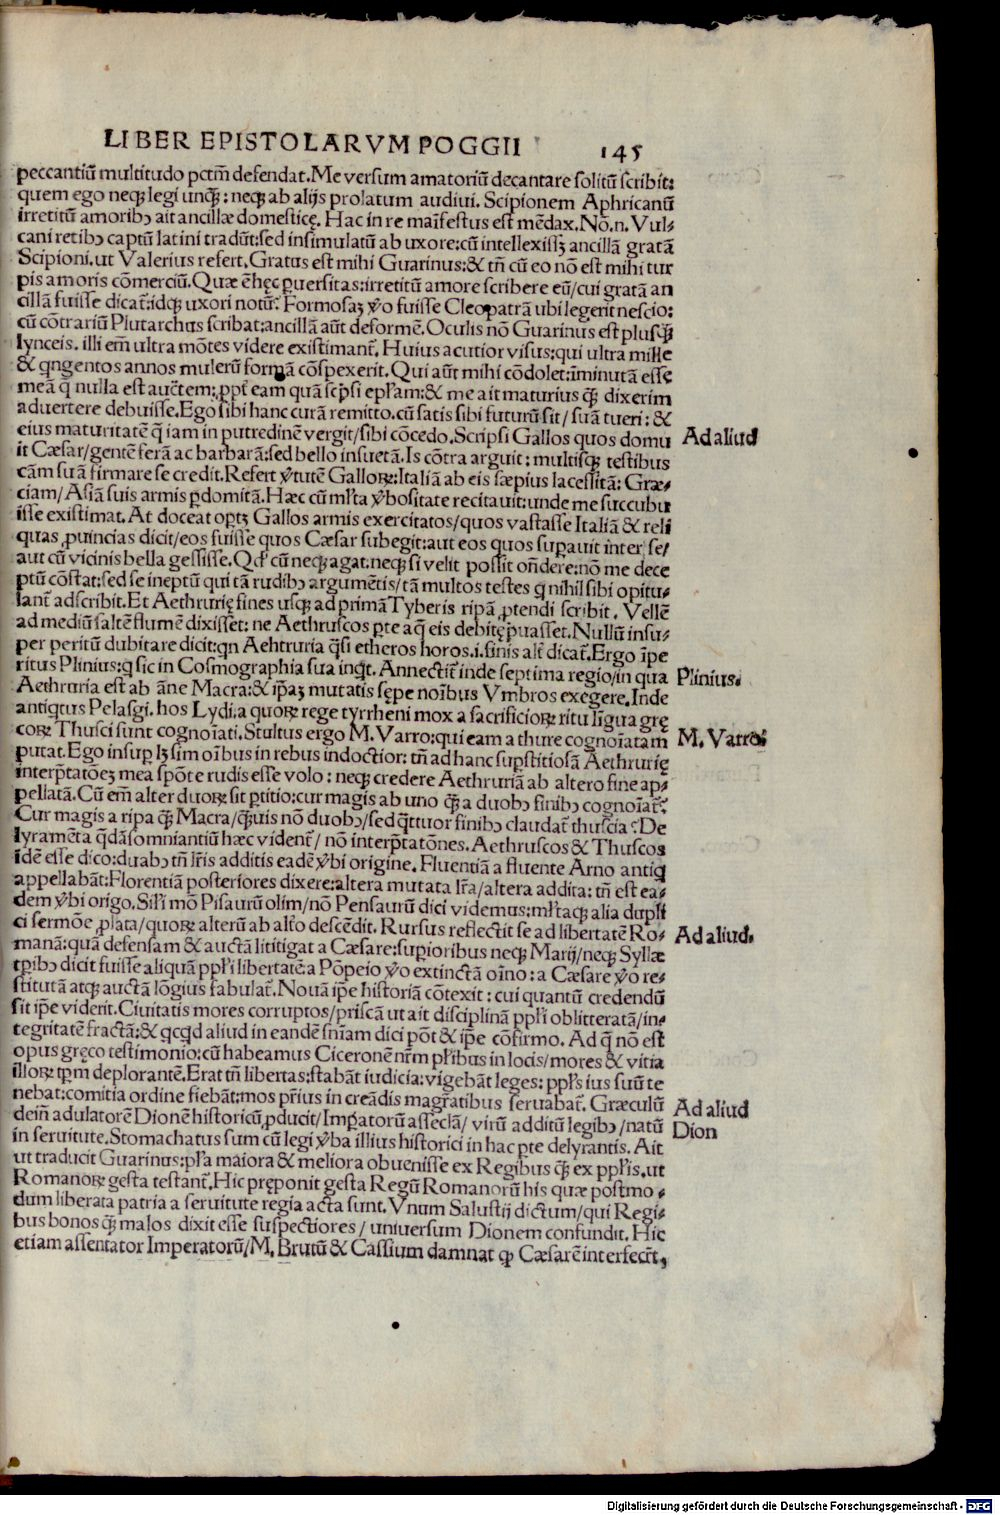 LIBER EPISTOLARVM POGGII 145
peccantiū multitudo pctm̄ defendat. Me versum amatoriū decantare solitū scribit:
quem ego neqꝫ legi unqꝫ̄: neqꝫ ab alijs prolatum audiui. Scipionem Aphricanū
irretitū amoribꝰ ait ancillæ domesticę. Hac in re maīfestus est mēdax. Nō.n. Vul-
cani retibꝰ captū latini tradūt: sed insimulatū ab uxore: cū intellexissꝫ ancillā gratā
Scipioni. ut Valerius refert. Gratus est mihi Guarinus: & tn̄ cū eo nō est mihi tur
pis amoris cōmerciū. Quæ ē hęc ꝑuersitas: irretitū amore scribere eū/ cui gratā an
cillā fuisse dicat̄: idqꝫ uxori notū? Formosaꝫ ṽo fuisse Cleopatrā ubi legerit nescio:
cū cōtrariū Plutarchus scribat: ancillā aūt deformē. Oculis nō Guarinus est plusqꝫ̄
lynceis. illi em̄ ultra mōtes videre existimant̄. Huius acutior visus: qui ultra mille
& qngentos annos mulerū formā cōspexerit. Qui aūt mihi cōdolet: īminutā esse
meā q̄ nulla est auctem: ꝓpt̄ eam quā scp̄si ep̄łam: & me ait maturius qꝫ̄ dixerim
aduertere debuisse. Ego sibi hanc curā remitto. cū satis sibi futurū sit/ suā tueri: &
eius maturitatē q̄ iam in putredinē vergit/ sibi cōcedo. Scripsi Gallos quos domu
Ad aliud
it Cæsar/ gentē ferā ac barbarā: sed bello insuetā. Is cōtra arguit: multisqꝫ testibus
cām suā firmare se credit. Refert ṽtutē Galloꝝ: Italiā ab eis sæpius lacessitā: Græ-
ciam/ Asiā suis armis ꝑdomitā. Hæc cū młta ṽbositate recitauit: unde me succubu
isse existimat. At doceat optꝫ Gallos armis exercitatos/ quos vastasse Italiā & reli
quas ꝓuincias dicit/ eos fuisse quos Cæsar subegit: aut eos quos suꝑauit inter se/
aut cū vicinis bella gessisse. Qd́ cū neqꝫ agat: neqꝫ si velit possit on̄dere: nō me dece
ptū cōstat: sed se ineptū qui tā rudibꝰ argumētis/ tā multos testes q nihil sibi opitu-
lant̄ adscribit. Et Aethrurię fines usqꝫ ad primā Tyberis ripā ꝓtendi scribit. Vellē
ad mediū saltē flumē dixisset: ne Aethruscos ꝑte aq̄ eis debitę ꝓuasset. Nullū insu-
per peritū dubitare dicit: qn Aehtruria q̄si etheros horos .i. finis alt̄ dicat̄. Ergo īpe
ritus Plinius: q sic in Cosmographia sua inqt. Annectit̄ inde septima regio/ in qua
Plinius.
Aethruria est ab āne Macra: & ip̄aꝫ mutatis sępe noībus Vmbros exegere. Inde
antiqtus Pelasgi. hos Lydi: a quoꝝ rege tyrrheni mox a sacrificioꝝ ritu līgua grę
coꝝ Thusci sunt cognoīati. Stultus ergo M. Varro: qui eam a thure cognoīatam
M. Varro.
putat. Ego insuꝑ lꝫ sim oībus in rebus indoctior: tn̄ ad hanc suꝑstitiosā Aethrurię
interp̄tatōeꝫ mea spōte rudis esse volo: neqꝫ credere Aethruriā ab altero fine ap-
pellatā. Cū em̄ alter duoꝝ sit ꝑtitio: cur magis ab uno qꝫ̄ a duobꝰ finibꝰ cognoīat̄?
Cur magis a ripa qꝫ̄ Macra/ qꝫ̄uis nō duobꝰ/ sed q̄ttuor finibꝰ claudat̄ thuscia? De
lyramēta q̄dā somniantiū hæc vident̄/ nō interp̄tatōnes. Aethruscos & Thuscos
idē esse dico: duabꝰ tn̄ lr̄is additis eadē ṽbi origine. Fluentiā a fluente Arno antiq
appellabāt: Florentiā posteriores dixere: altera mutata lr̄a/ altera addita: tn̄ est ea-
dem ṽbi origo. Sili mō Pisaurū olim/ nō Pensaurū dici videmus: młtaqꝫ alia dupli
ci sermōe ꝓlata/ quoꝝ alterū ab alt̄o descēdit. Rursus reflectit se ad libertatē Ro-
Ad aliud.
manā: quā defensam & auctā lititigat a Cæsare: suꝑioribus neqꝫ Marij/ neqꝫ Syllæ
tꝑibꝰ dicit fuisse aliquā ppłi libertatē: a Pōpeio ṽo extinctā oīno: a Cæsare ṽo re-
stitutā atqꝫ auctā lōgius fabulat̄. Nouā ip̄e historiā cōtexit: cui quantū credendū
sit ip̄e viderit. Ciuitatis mores corruptos/ priscā ut ait disciplinā ppłi oblitteratā/ in-
tegritatē fractā: & qcqd aliud in eandē sn̄iam dici pōt & ip̄e cōfirmo. Ad q̄ nō est
opus gręco testimonio: cū habeamus Ciceronē nr̄m płibus in locis/ mores & vitia
illoꝝ tp̄m deplorantē. Erat tn̄ libertas: stabāt iudicia: vigebāt leges: ppłs ius suū te
nebat: comitia ordine fiebāt: mos pr̄ius in creādis magr̄atibus seruabat̄. Græculū
Ad aliud
dein̄ adulatorē Dionē historicū ꝓducit/ Imꝑatorū asseclā/ virū additū legibꝰ/ natū
Dion
in seruitute. Stomachatus sum cū legi ṽba illius historici in hac ꝑte delyrantis. Ait
ut traducit Guarinus: płra maiora & meliora obuenisse ex Regibus qꝫ̄ ex ppłis. ut
Romanoꝝ gesta testant̄. Hic pręponit gesta Regū Romanorū his quæ postmo-
dum liberata patria a seruitute regia acta sunt. Vnum Salustij dictum/ qui Regi-
bus bonos qꝫ̄ malos dixit esse suspectiores/ uniuersum Dionem confundit. Hic
etiam assentator Imperatorū/ M. Brutū & Cassium damnat ꝙ Cæsarē interfecr̄t,
Digitalisierung gefördert durch die Deutsche Forschungsgemeinschaft - DFG